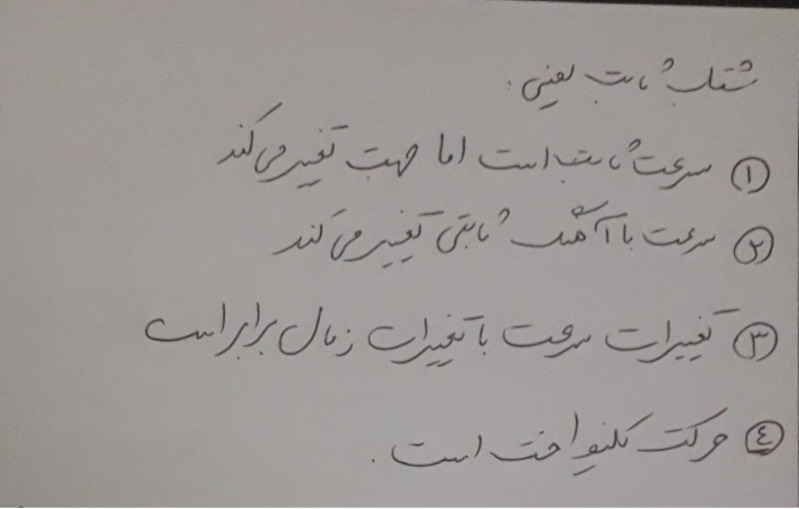 شتاب ثابت یعنی:
① سرعت ثابت است اما جهت تغییر می‌کند
② سرعت با آهنگ ثابتی تغییر می‌کند
③ تغییرات سرعت با تغییرات زمان برابر است
④ حرکت یکنواخت است.